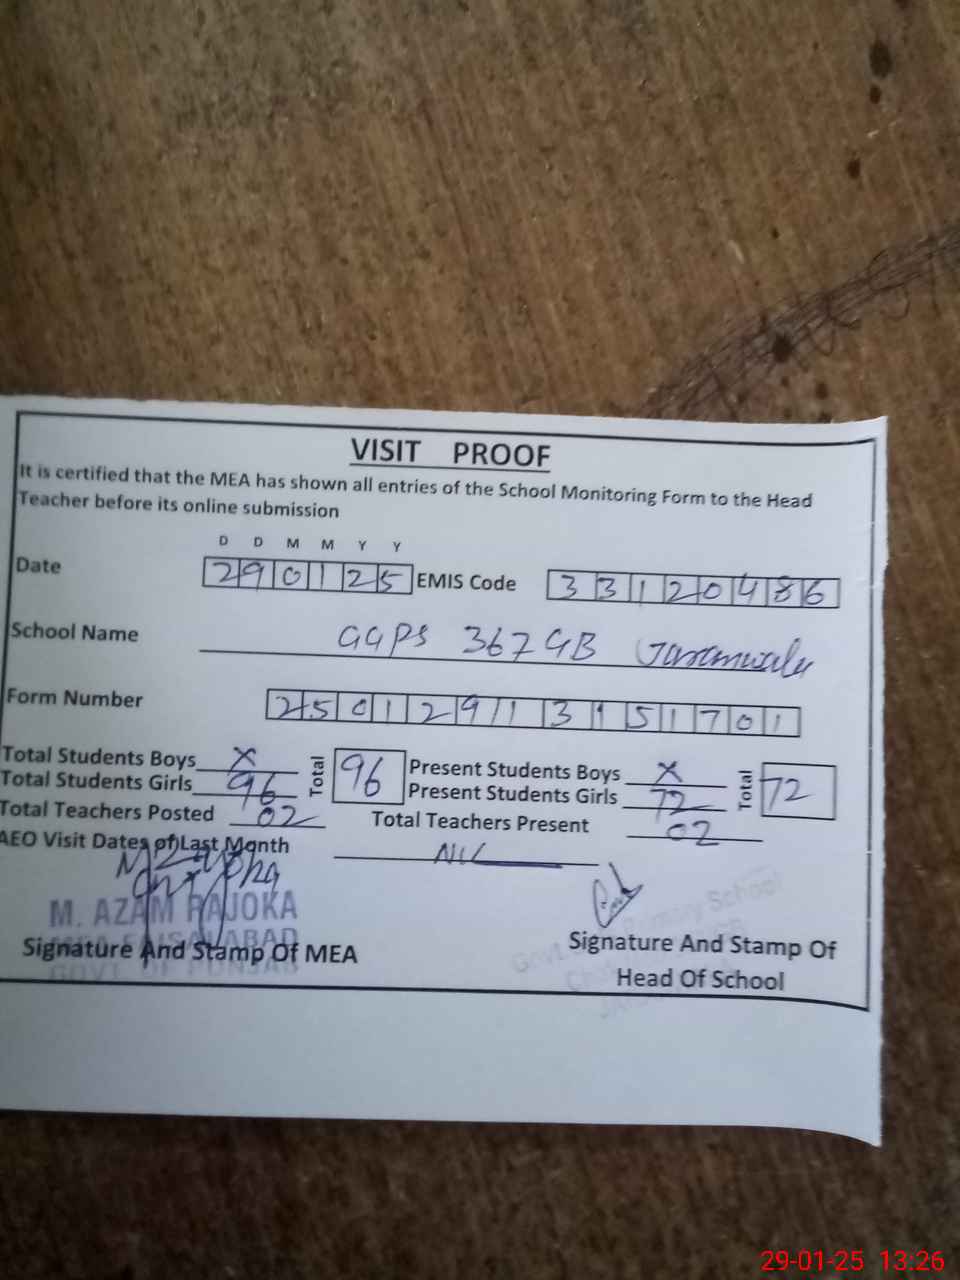 VISIT PROOF
It is certified that the MEA has shown all entries of the School Monitoring Form to the Head
Teacher before its online submission
D D M M Y Y
Date 290125 EMIS Code 33120486
School Name GGPS 367 GB Jaranwala
Form Number 250129113151701
Total Students Boys X Total 96 Present Students Boys X Total 72
Total Students Girls 96 Present Students Girls 72
Total Teachers Posted 02 Total Teachers Present 02
AEO Visit Dates of Last Month NIL
M. AZAM RAJOKA
MEA FAISALABAD
GOVT OF PUNJAB
Signature And Stamp Of MEA
Govt. Primary School
Signature And Stamp Of
Head Of School
29-01-25 13:26